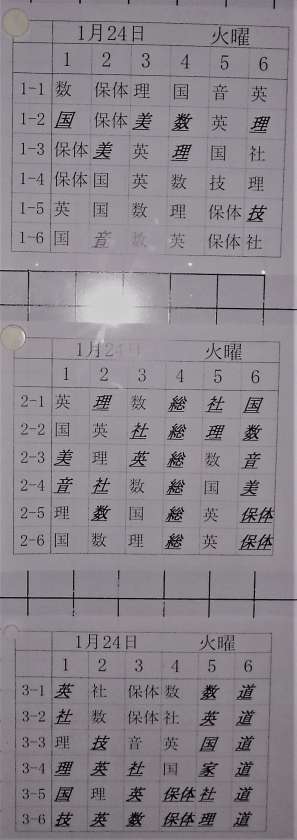 1月24日 火曜
1 2 3 4 5 6
1-1 数 保体 理 国 音 英
1-2 国 保体 美 数 英 理
1-3 保体 美 英 理 国 社
1-4 保体 国 英 数 技 理
1-5 英 国 数 理 保体 技
1-6 国 音 数 英 保体 社
1月24日 火曜
1 2 3 4 5 6
2-1 英 理 数 総 社 国
2-2 国 英 社 総 理 数
2-3 美 理 英 総 数 音
2-4 音 社 数 総 国 美
2-5 理 数 国 総 英 保体
2-6 国 数 理 総 英 保体
1月24日 火曜
1 2 3 4 5 6
3-1 英 社 保体 数 数 道
3-2 社 数 保体 社 英 道
3-3 理 技 音 英 国 道
3-4 理 英 社 国 家 道
3-5 国 理 英 保体 社 道
3-6 技 英 数 保体 理 道